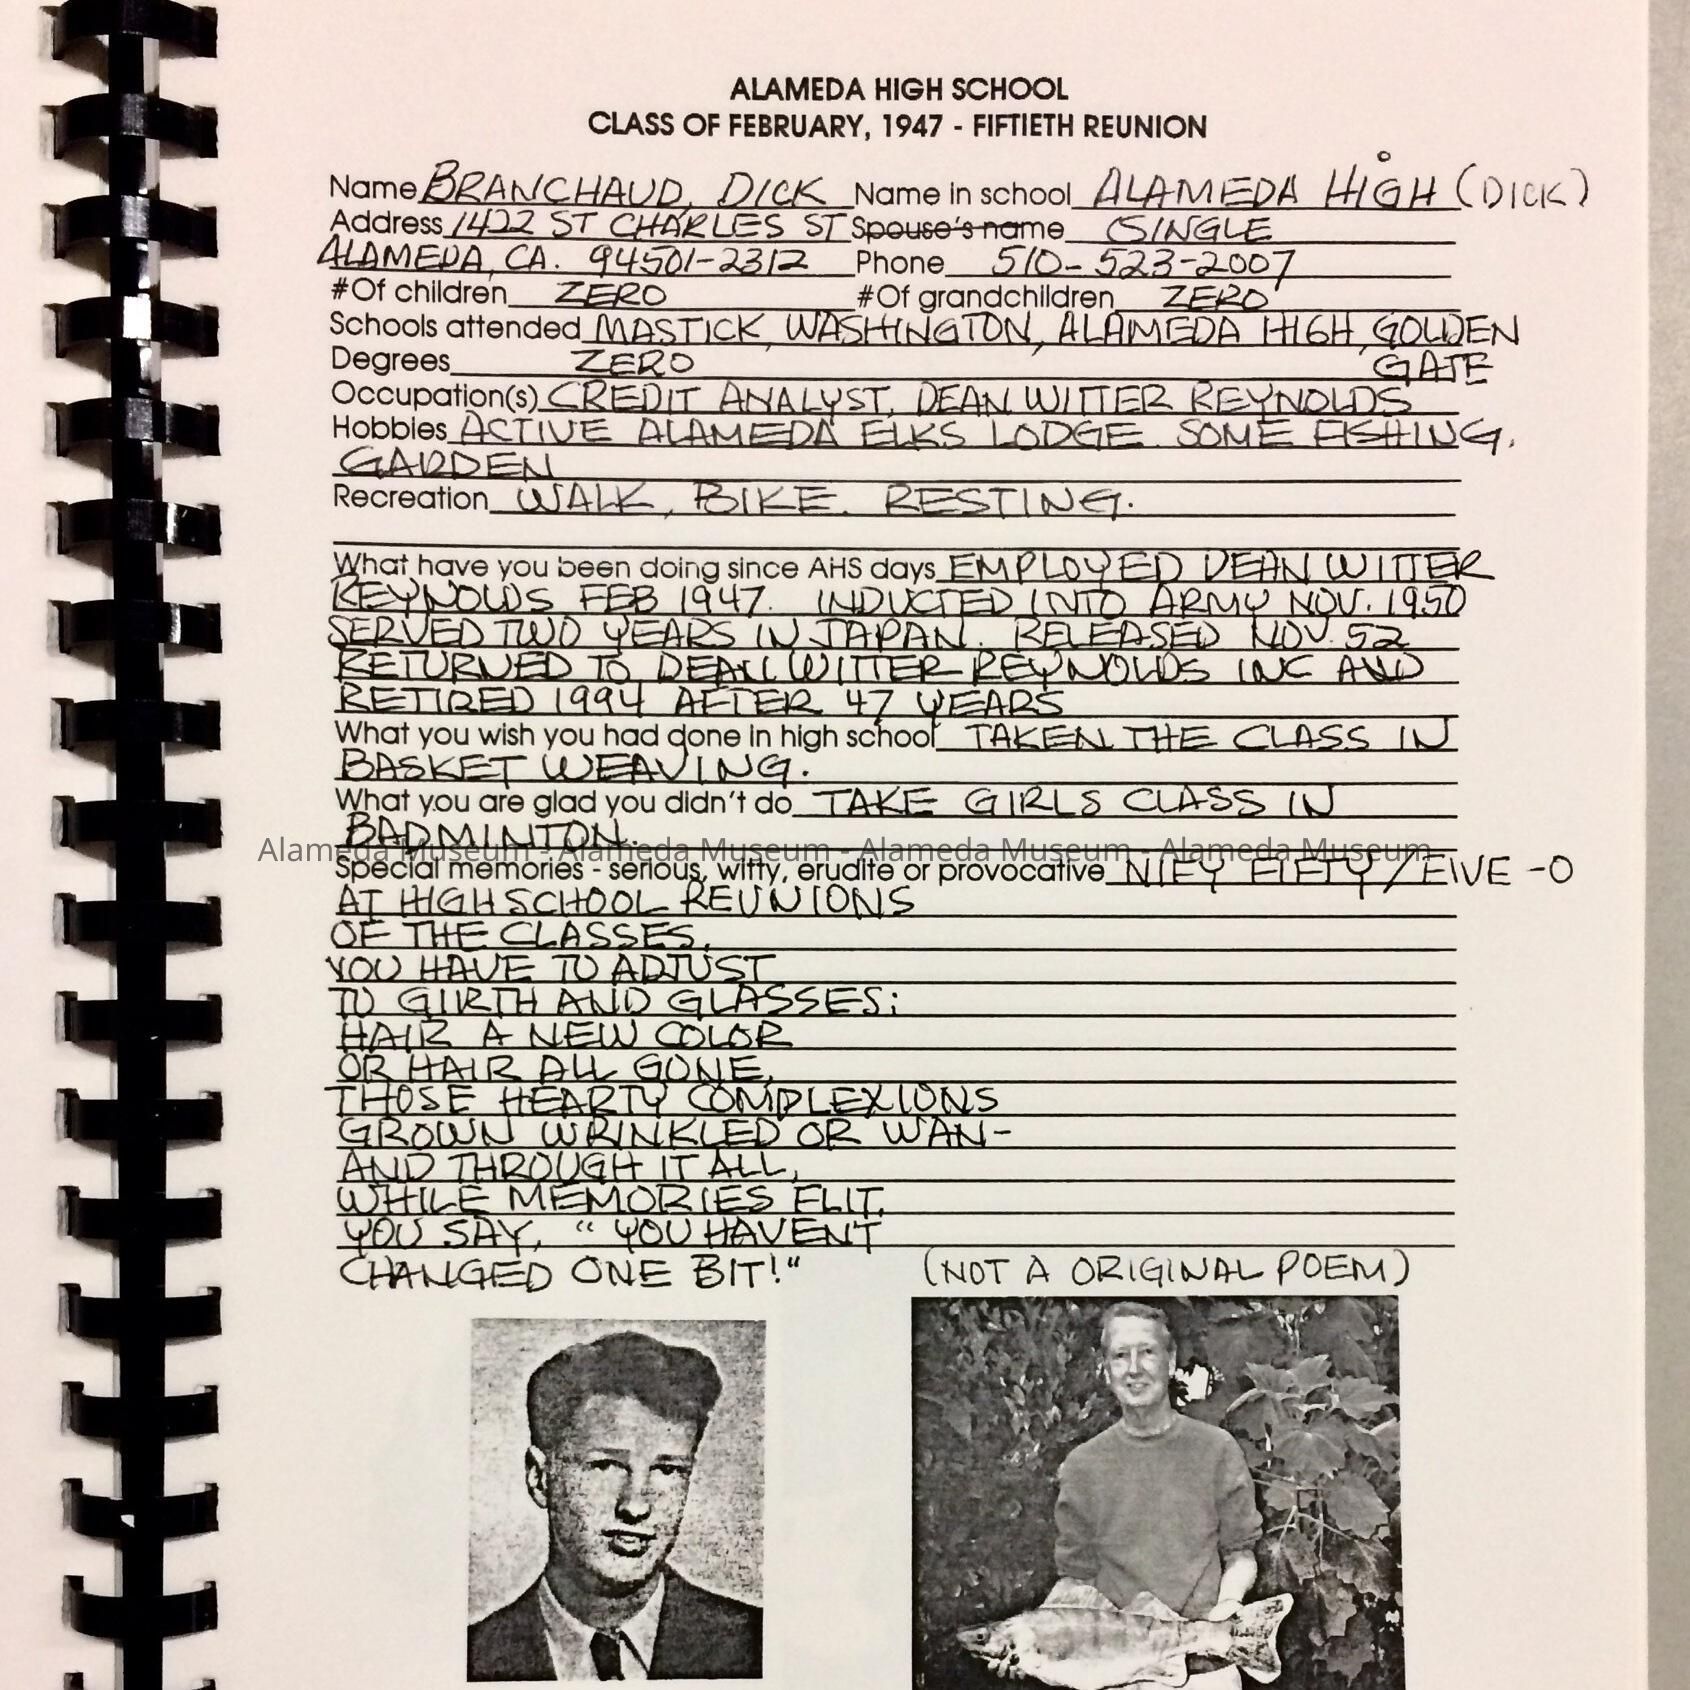 ALAMEDA HIGH SCHOOL
CLASS OF FEBRUARY, 1947 - FIFTIETH REUNION
Name BRANCHAUD, DICK Name in school ALAMEDA HIGH (DICK)
Address 1422 ST CHARLES ST Spouse's name SINGLE
ALAMEDA, CA. 94501-2312 Phone 510-523-2007
#Of children ZERO #Of grandchildren ZERO
Schools attended MASTICK, WASHINGTON, ALAMEDA HIGH, GOLDEN
Degrees ZERO GATE
Occupation(s) CREDIT ANALYST, DEAN WITTER REYNOLDS
Hobbies ACTIVE ALAMEDA ELKS LODGE. SOME FISHING,
GARDEN
Recreation WALK, BIKE. RESTING.
What have you been doing since AHS days EMPLOYED DEAN WITTER
REYNOLDS FEB 1947. INDUCTED INTO ARMY NOV. 1950
SERVED TWO YEARS IN JAPAN. RELEASED NOV. 52
RETURNED TO DEAN WITTER REYNOLDS INC AND
RETIRED 1994 AFTER 47 YEARS
What you wish you had done in high school TAKEN THE CLASS IN
BASKET WEAVING.
What you are glad you didn't do TAKE GIRLS CLASS IN
BADMINTON.
Alameda Museum - Alameda Museum - Alameda Museum - Alameda Museum
Special memories - serious, witty, erudite or provocative NIFY FIFTY/FIVE-O
AT HIGH SCHOOL REUNIONS
OF THE CLASSES,
YOU HAVE TO ADJUST
TO GIRTH AND GLASSES;
HAIR A NEW COLOR
OR HAIR ALL GONE,
THOSE HEARTY COMPLEXIONS
GROWN WRINKLED OR WAN-
AND THROUGH IT ALL,
WHILE MEMORIES FLIT,
YOU SAY, "YOU HAVEN'T
CHANGED ONE BIT!" (NOT A ORIGINAL POEM)